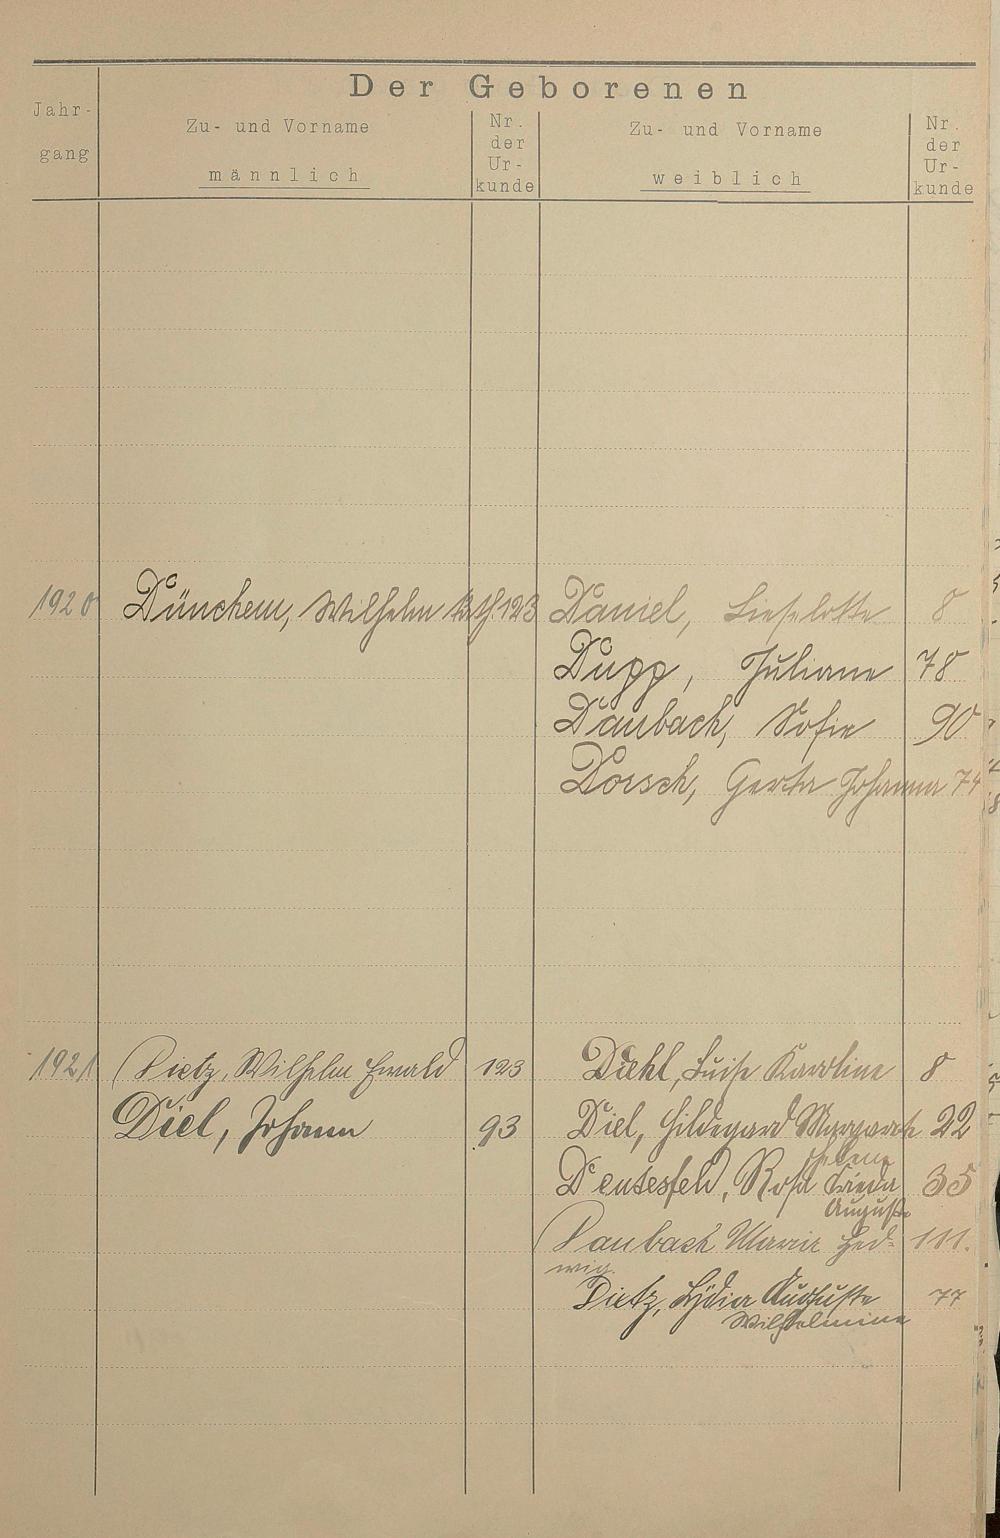 Der Geborenen
Jahr-
gang
Zu- und Vorname
männlich
Nr.
der
Ur-
kunde
Zu- und Vorname
weiblich
Nr.
der
Ur-
kunde
1920 Dünchem, Wilhelm 123 Daniel, Lieselotte 8
Dupp, Juliane 78
Daubach, Sofie 90
Dorsch, Gerta Johanna 74
1921 Dietz, Wilhelm Ewald 123 Diehl, Luise Karoline 8
Diel, Johann 93 Diel, Hildegard Margarete 22
Helene
Deutesfeld, Rosa Frieda 35
Auguste
Daubach Maria Hed- 111.
wig.
Dietz, Lydia Auguste 77
Wilhelmine